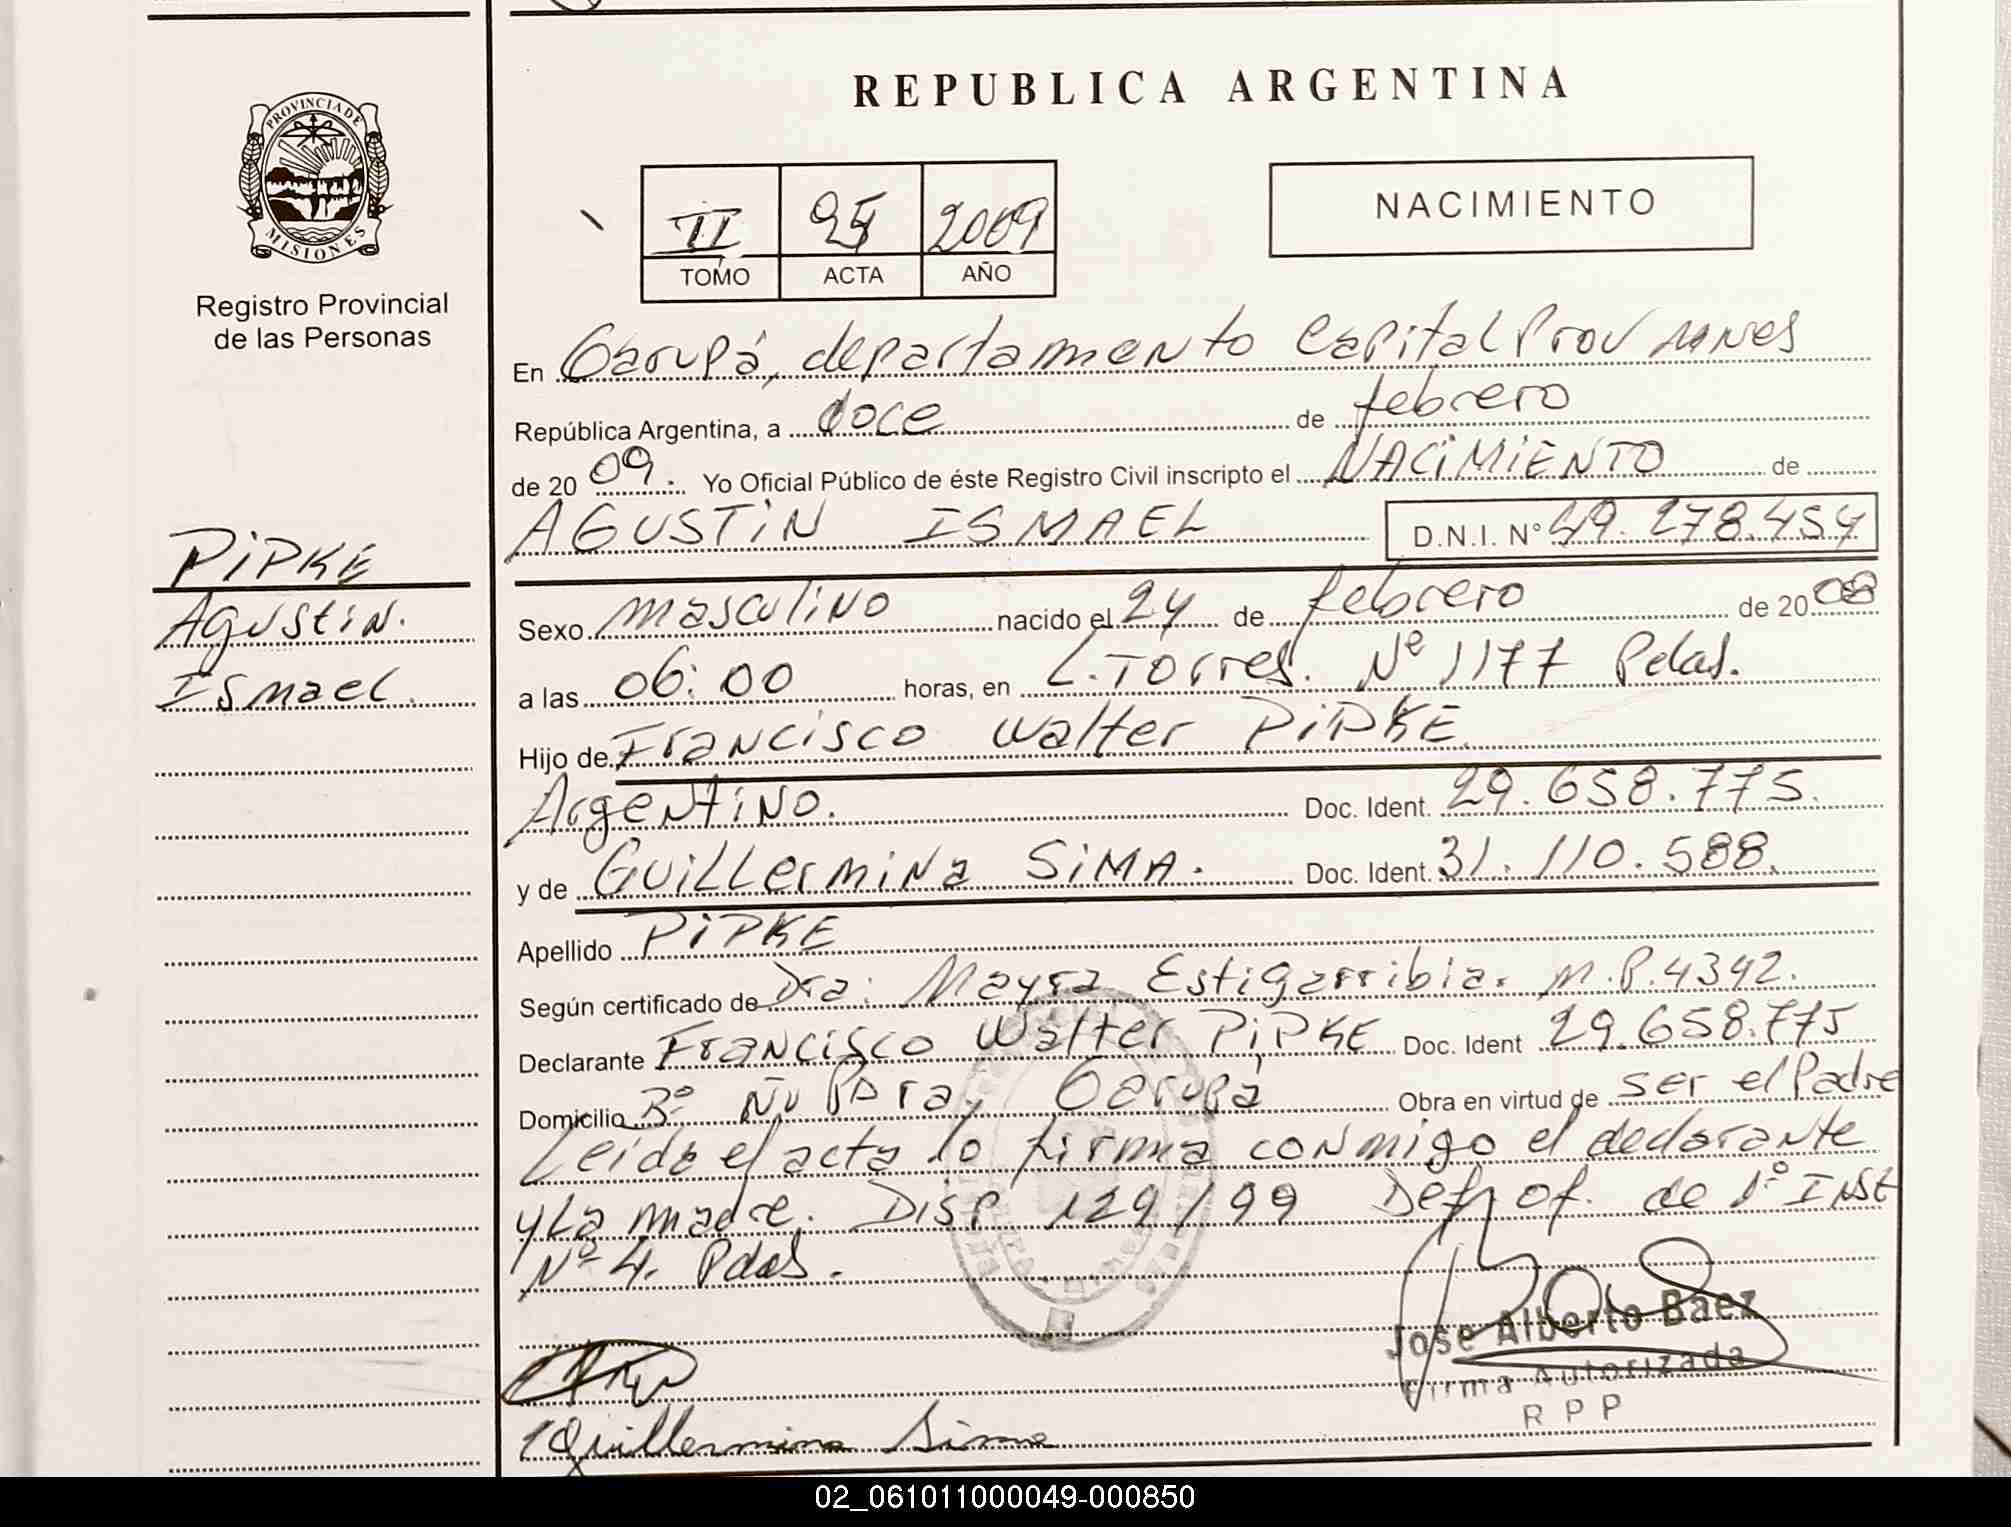 REPUBLICA ARGENTINA
PROVINCIA DE
MISIONES
Registro Provincial
de las Personas
II 2009
TOMO ACTA AÑO
NACIMIENTO
En Garupá, departamento Capital Prov
República Argentina, a doce de febrero
de 20 09. Yo Oficial Público de éste Registro Civil inscripto el NACIMIENTO de
AGUSTIN ISMAEL D.N.I. Nº 49.278.454
PIPKE
Agustin.
Ismael.
Sexo masculino nacido el 24 de febrero de 20 08
a las 06:00 horas, en L. Torres. Nº 1177 Pdas.
Hijo de Francisco Walter PIPKE
Argentino. Doc. Ident. 29.658.775.
y de Guillermina SIMA. Doc. Ident. 31.110.588.
Apellido PIPKE
Según certificado de Dra: Mayra Estigarribia. M.P. 4342.
Declarante Francisco Walter PIPKE Doc. Ident 29.658.775
Domicilio Bº Ñu Pora, Garupá Obra en virtud de ser el Padre
Leida el acta lo firma conmigo el declarante
y La madre. DISP. 129/99 Def of. de 1º INST
Nº 4. Pdas.
Jose Alberto Baez
Firma Autorizada
RPP
Guillermina Sima
02_061011000049-000850